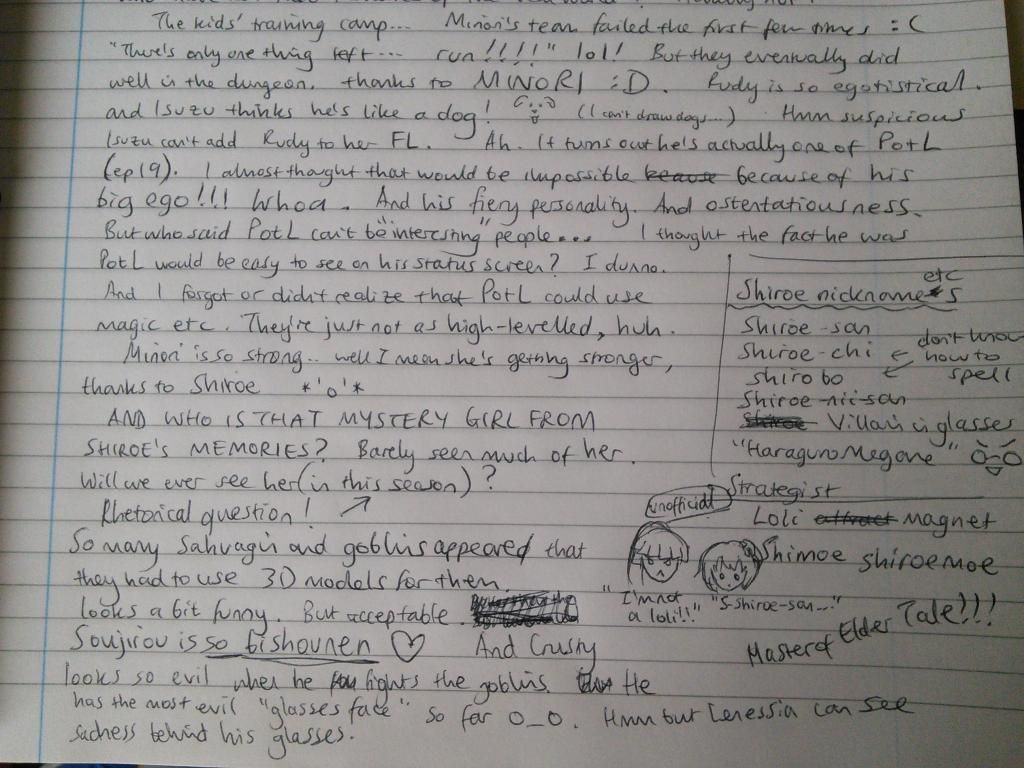 The kids' training camp... Minori's team failed the first few times :C
"There's only one thing left.... run!!!!" lol! But they eventually did
well in the dungeon. thanks to MINORI :D. Rudy is so egotistical.
and Isuzu thinks he's like a dog! (I can't draw dogs...) Hmm suspicious
Isuzu can't add Rudy to her FL. Ah. It turns out he's actually one of PotL
(ep 19). I almost thought that would be impossible because of his
big ego!!! Whoa. And his fiery personality. And ostentatiousness.
But who said PotL can't be "interesting" people... I thought the fact he was
PotL would be easy to see on his status screen? I dunno.
And I forgot or didn't realize that PotL could use
magic etc. They're just not as high-levelled, huh.
Minori is so strong.. well I mean she's getting stronger,
thanks to Shiroe *'o'*
AND WHO IS THAT MYSTERY GIRL FROM
SHIROE'S MEMORIES? Barely seen much of her.
Will we ever see her (in this season)?
Rhetorical question!
So many Sahuagin and goblins appeared that
they had to use 3D models for them.
looks a bit funny. But acceptable.
Soujirou is so bishounen ♡ And Crusty
looks so evil when he fights the goblins. He
has the most evil "glasses face" so far O_O. Hmm but Lenessia can see
sadness behind his glasses.
Shiroe nicknames etc
Shiroe-san
Shiroe-chi ← don't know how to spell
shirobo ←
Shiroe-nii-san
Villain in glasses
"Haraguro Megane"
Strategist
(unofficial)
Loli magnet
Shimoe shiroemoe
"I'm not a loli!!" "S-shiroe-san..."
Master of Elder Tale!!!